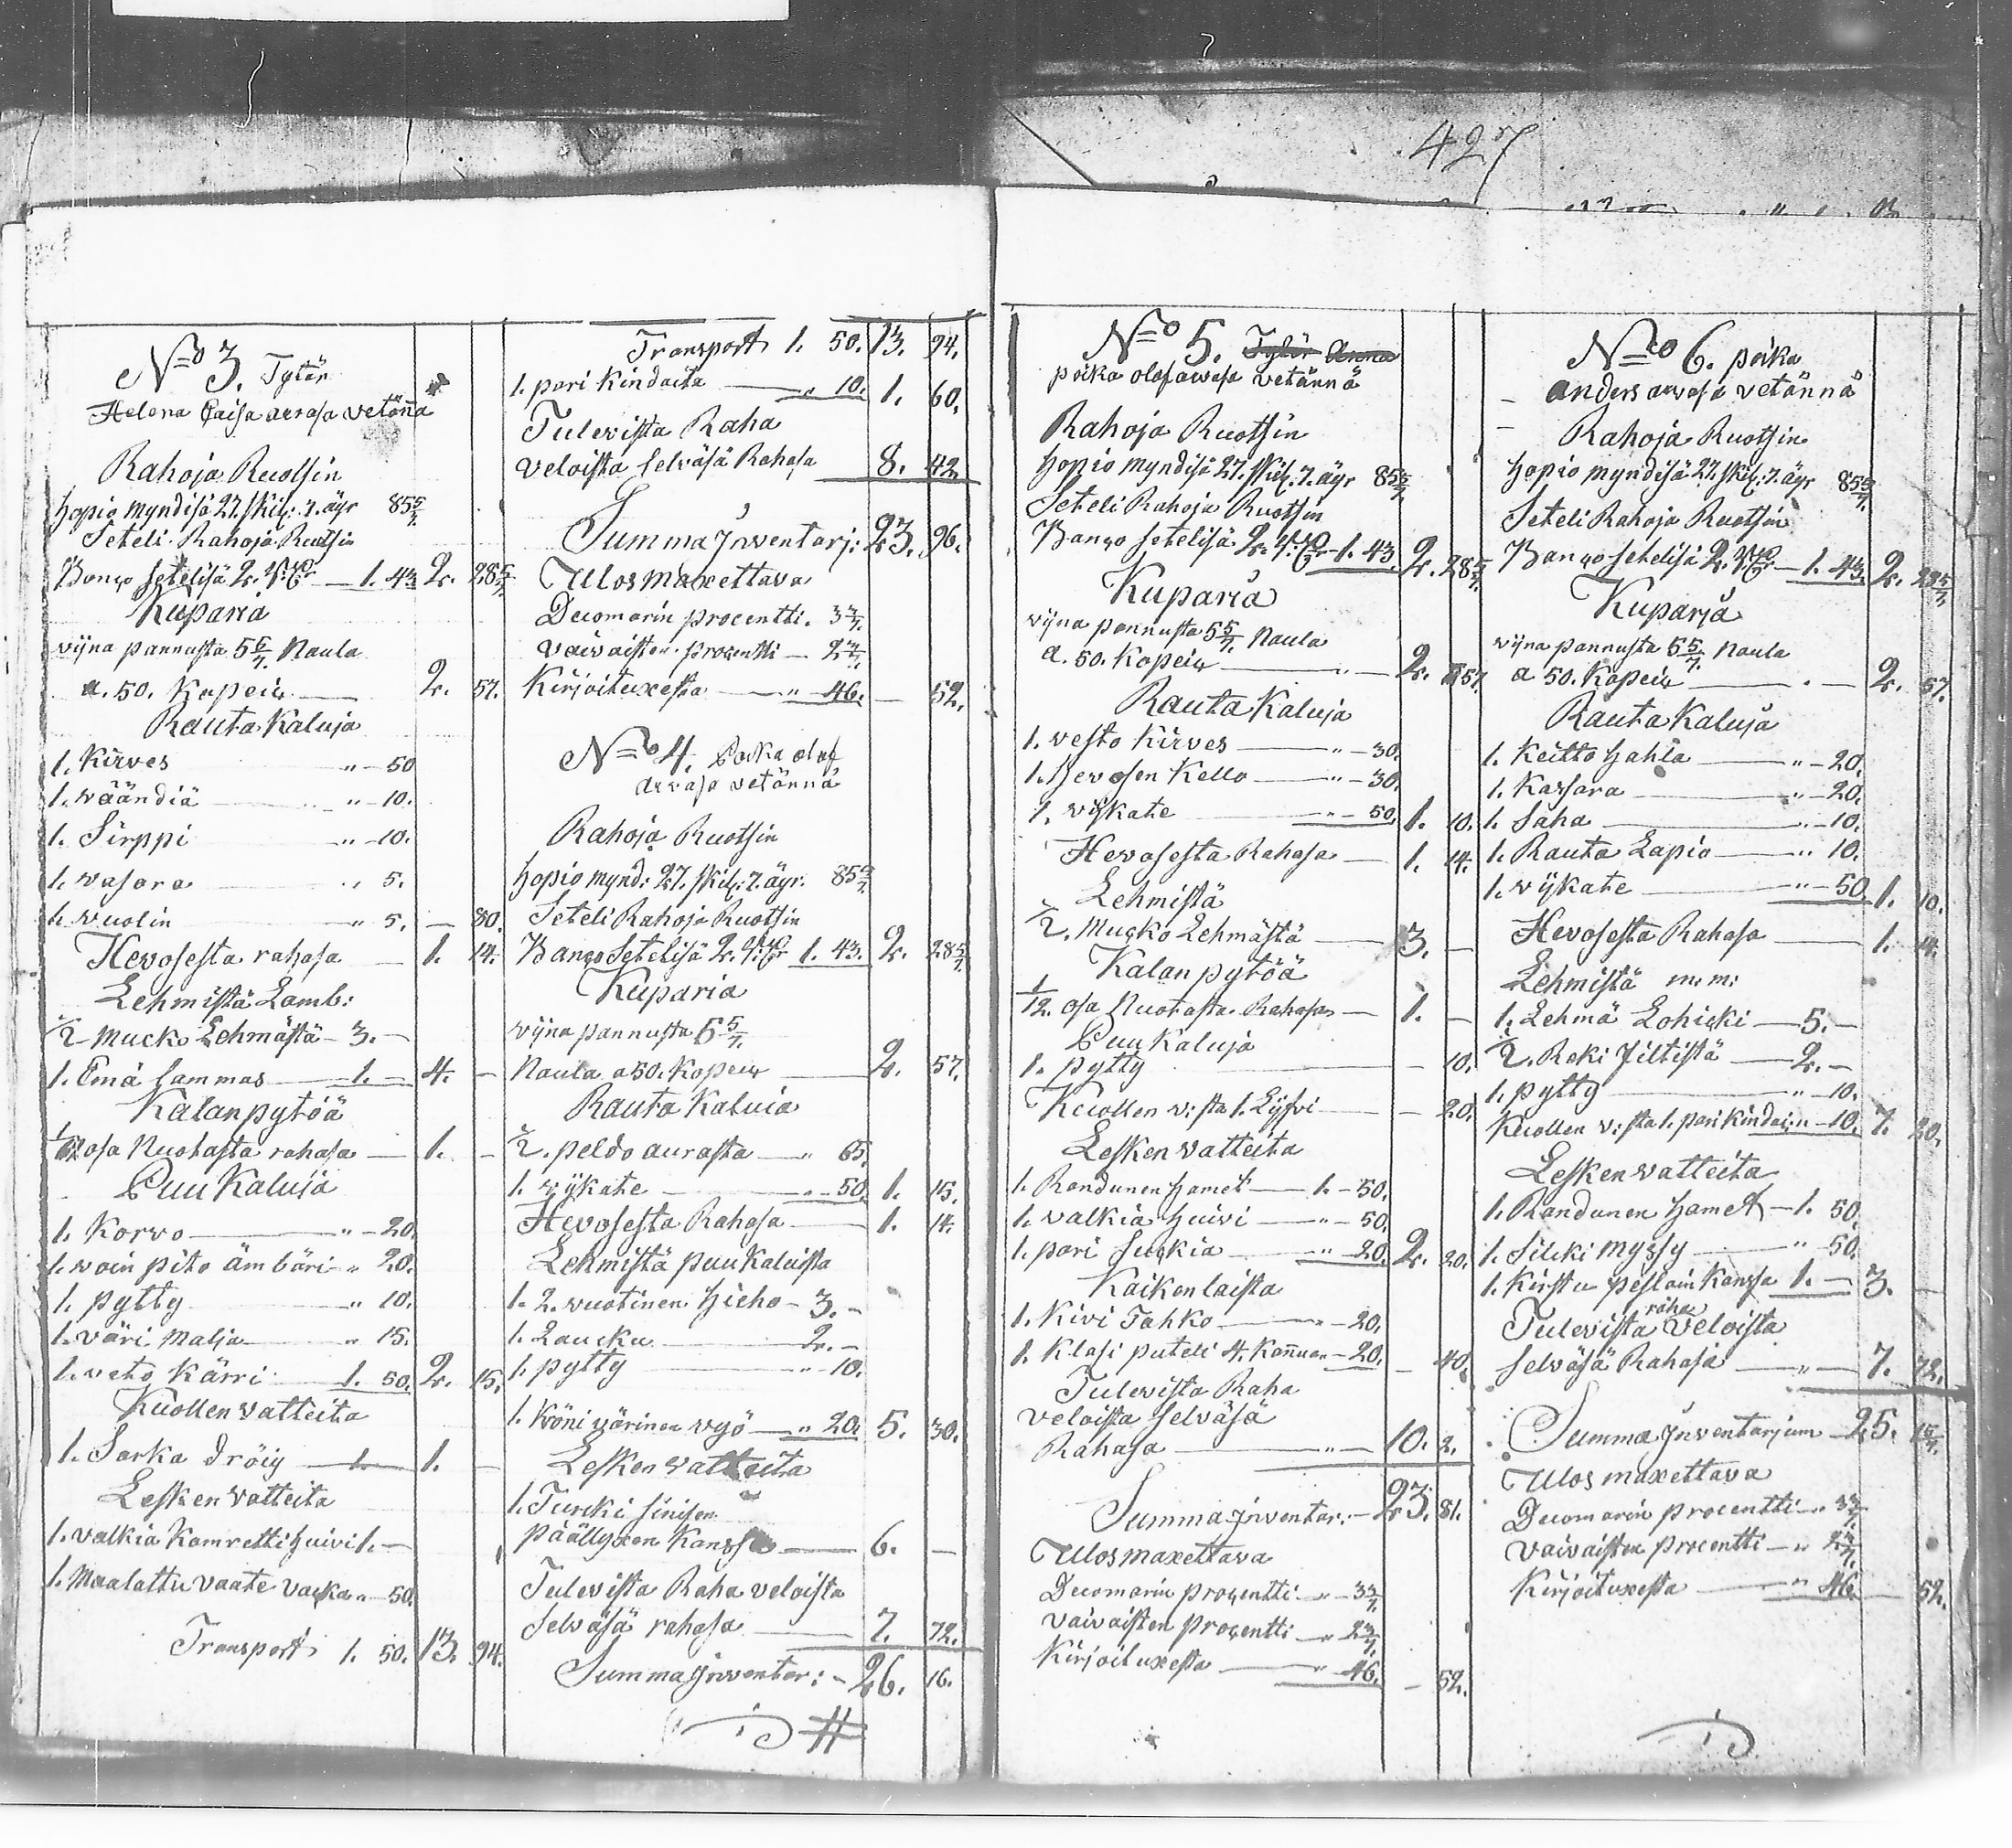 427
No 3. Tytär
Helena Caisa arvasa vetänä
Rahoja Ruotsin
hopio myndisä 27. skil: 7. äyr 85 5/7.
Seteli Rahoja Ruotsin
Banço setelisä 2. — 1. 43. 2. 28 5/7.
Kuparia
vijna pannusta 5 5/7. Naula
a. 50. Kopeik — 2. 57.
Rauta Kaluja
1. Kirves „ — 50
1. wäändiä — „ — 10.
1. Sirppi „ — 10.
1. vasara „ 5.
1. vuolin „ 5. — 80.
Hevosesta rahasa — 1. 14.
Lehmistä Lamb:
1/2 Mucko Lehmästä — 3. —
1. Emä lammas — 1. — 4. —
Kalanpytöä
1/12 osa Nuotasta rahasa — 1. —
Puu Kaluja
1. Korvo — „ — 20.
1. voin pito ämbäri — „ 20.
1. pytty „ 10.
1. väri Malja — „ 15.
1. veto Kärri — 1. 50. 2. 15.
Kuollen vatteita
1. Sarka dröijy — 1. 1. —
Lesken vatteita
1. valkia Kamretti huivi 1. —
1. Maalattu vaate vacka „ — 50.
Transport 1. 50. 13. 94.
Transport 1. 50. 13. 94.
1. pari Kindaita — „ 10. 1. 60.
Tulevista Raha
veloista selväsä Rahasa 8. 42.
Summa Inventarj: 23. 96.
Ulosmaxettava
Duomarin procentti. 3 3/7.
Vaivaisten procentti — 2 4/7.
Kirjoituxesta — „ 46. — 52.
No 4. Poika olof
arvasa vetännä
Rahoja Ruotsin
hopio mynd: 27. skil: 7. äyr. 85 5/7.
Seteli Rahoja Ruotsin
Banço Setelisä 2. 1. 43. 2. 28 5/7.
Kuparia
vijna pannusta 5 5/7.
Naula a 50. Kopeik — 2. 57.
Rauta Kaluia
1/2. peldo aurasta — „ 65.
1. vijkate — „ — 50. 1. 15.
Hevosesta Rahasa — 1. 14.
Lehmistä puu Kaluista
1. 2. vuotinen hieho — 3. —
1. Laucku — 2. —
1. pytty — „ — 10.
1. Kröni värinen vyö — „ 20. 5. 30.
Lesken vatteita
1. Turcki sinisen
päällyxen Kanssa — 6. —
Tulevista Raha veloista
Selväsä rahasa — 7. 72.
Summa Inventar: — 26. 16.
No 5. Tytär Anna
poika olof arvasa vetännä
Rahoja Ruotsin
hopio myndisä 27. skil: 7. äyr 85 5/7.
Seteli Rahoja Ruotsin
Banço setelisä 2. — 1. 43. 2. 28 5/7.
Kuparia
vijna pannusta 5 5/7. Naula
a. 50. Kopeik — „ — 2. 57.
Rauta Kaluja
1. vesto Kirves — „ — 30.
1. Hevosen Kello — „ — 30.
1. vijkate — „ — 50. 1. 10.
Hevosesta Rahasa — 1. 14.
Lehmistä
1/2. Mucko Lehmästä — 3. —
Kalan pytöä
1/12. osa Nuotasta Rahasa — 1. —
Puu Kaluja
1. pytty — 10.
Kuollen v:sta 1. Lijvi — — 20.
Lesken vatteita
1. Randunen hamet — 1. — 50.
1. valkia huivi — „ — 50.
1. pari Suckia — „ 20. 2. 20.
Kaikenlaista
1. Kivi Tahko — „ — 20.
1. Klasi puteli 4. Kannun — 20. — 40.
Tulevista Raha
veloista selväsä
Rahasa — „ — 10. 2.
Summa Inventar: — 23. 81.
Ulosmaxettava
Duomarin procentti — „ — 3 3/7.
Vaivaisten procentti — „ 2 4/7.
Kirjoituxesta — „ 46. — 52.
No 6. poika
anders arvasa vetännä
Rahoja Ruotsin
hopio myndisä 27. skil: 7. äyr 85 5/7.
Seteli Rahoja Ruotsin
Banço setelisä 2. — 1. 43. 2. 28 5/7.
Kuparia
vijna pannusta 5 5/7. Naula
a 50. Kopeik — . — 2. 57.
Rauta Kaluja
1. Keitto hahla — „ — 20.
1. Kassara — „ — 20.
1. Saha — „ — 10.
1. Rauta Lapio — „ 10.
1. vijkate — „ — 50. 1. 10.
Hevosesta Rahasa — 1. 14.
Lehmistä m: m:
1. Lehmä Lohicki — 5. —
1/2. Reki Jiltistä — 2. —
1. pytty — „ — 10.
Kuollen v:sta 1. pari Kindai: „ — 10. 7. 20.
Lesken vatteita
1. Randunen hamet — 1. 50.
1. Silcki Myssy — „ 50.
1. Kirstu peslain Kanssa 1. — 3. —
Tulevista raha veloista
selväsä Rahasa — „ — 7. 72.
Summa Inventarium — 25. 15/7.
Ulosmaxettava
Duomarin procentti — „ 3 3/7.
Vaivaisten procentti — „ 2 4/7.
Kirjoituxesta — „ 46 — 52.